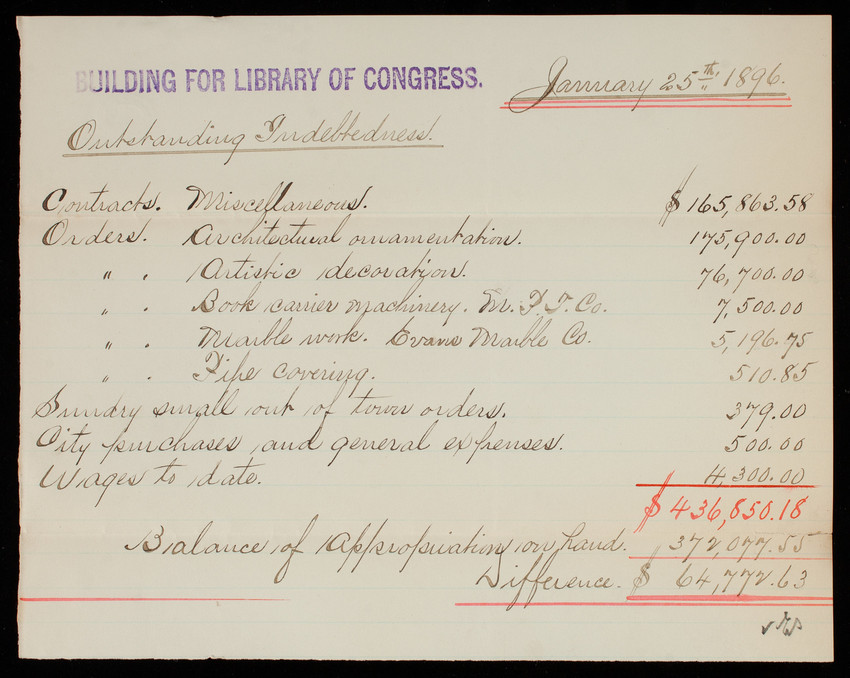 BUILDING FOR LIBRARY OF CONGRESS.
January 25th, 1896.
Outstanding Indebtedness.
Contracts. Miscellaneous. $ 165,863.58
Orders. Architectural ornamentation. 175,900.00
" . Artistic decoration. 76,700.00
" . Book carrier machinery. M. P. T. Co. 7,500.00
" . Marble work. Evans Marble Co. 5,196.75
" . Pipe covering. 510.85
Sundry small out of town orders. 379.00
City purchases and general expenses. 500.00
Wages to date. 4,300.00
$ 436,850.18
Balance of appropriation on hand. 372,077.55
Difference. $ 64,772.63